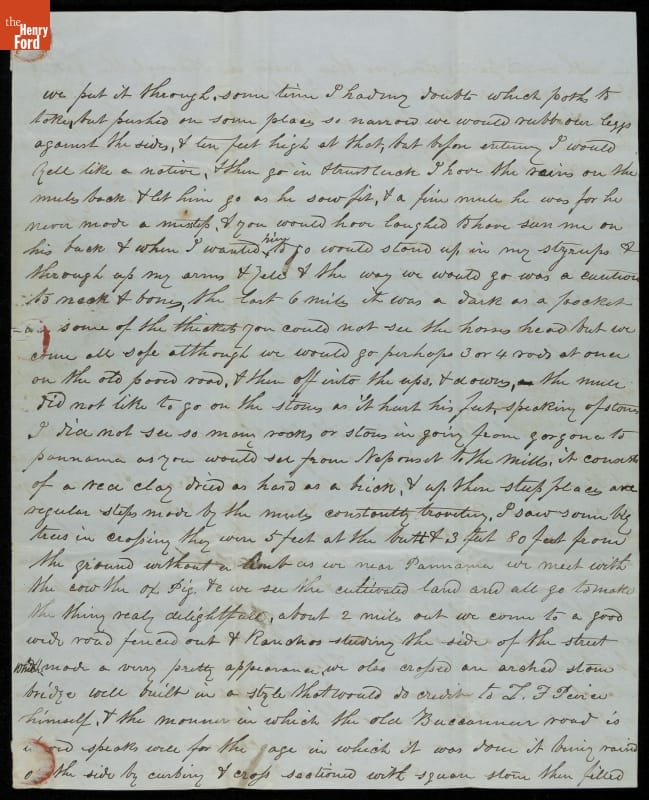 the
Henry
Ford
we put it through, some time I had my doubts which poth to
take, but pushed on some places so narrow we would rubb our leggs
against the sides, & ten feet high at that, but before entering I would
Yell like a native, & then go in trust luck I hove the rains on the
mules back & let him go as he saw fit, & a fine mule he was for he
never made a misstep, & you would have loughed to have seen me on
his back & when I wanted him to go would stand up in my styrups &
through up my arms & Yell & the way we would go was a caution
to neck & bones, the last 6 miles it was a dark as a pocket
some of the thickets you could not see the horses head but we
come all safe although we would go perhaps 3 or 4 rods at once
on the old paved road, & then off into the ups & downs, the mule
did not like to go on the stones as it hurt his feet, speaking of stones
I did not see so many rocks or stones in going from gorgona to
pannama as you would see from Neponset to the Mills, it consists
of a red clay dried as hard as a brick, & up these steep places are
regular steps made by the mules constantly traveling, I saw some big
trees in crossing they were 5 feet at the butt & 3 feet 80 feet from
the ground without a limb as we near Pannama we meet with
the cow the ox Pig &c we see the cultivated land and all go to make
the thing realy delightfull, about 2 miles out we come to a good
wide road fenced out & Ranchos studing the side of the street
which made a verry pretty appearance, we olso crossed an arched stone
bridge well built in a style that would do credit to L. F Peirce
himself, & the manner in which the old Buccanneer road is
speaks well for the age in which it was done it being raised
the side by curbing & cross sectioned with square stone then filled